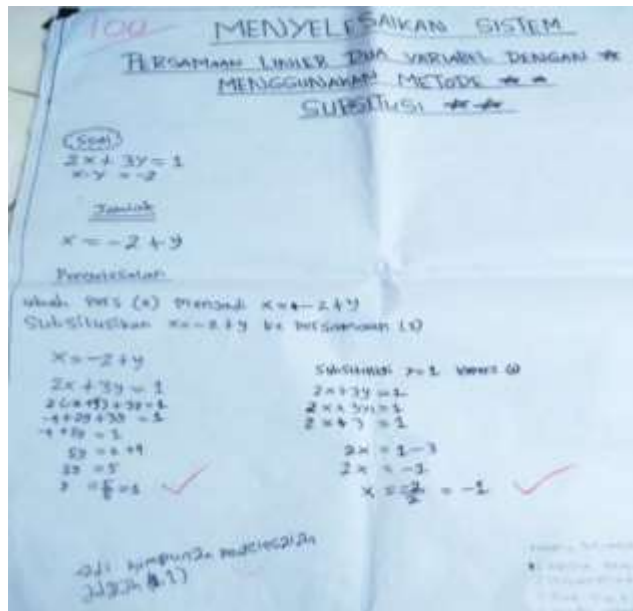 100
MENYELESAIKAN SISTEM
PERSAMAAN LINIER DUA VARIABEL DENGAN
MENGGUNAKAN METODE
SUBSITUSI
Soal
2x + 3y = 1
x-y = -2
Jawab
x = -2 + y
Penyelesaian
ubah Pers (2) menjadi x = -2+y
Subsitusikan x=-2+y ke persamaan (1)
x = -2+y
2x + 3y = 1
-4+2y+3y = 1
-4+5y = 1
5y = 5
y = 5/5 = 1
Subsitusi y=1
2x+3y = 1
2x+3 = 1
2x = 1-3
x = -2/2 = -1
himpunan penyelesaian